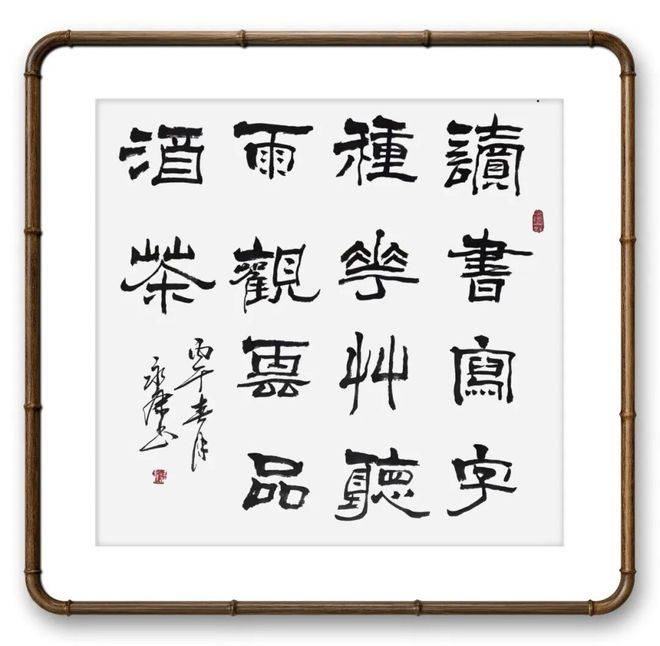 讀書寫字
種花艸聽
雨觀雲品
酒茶
丙午春月
永康书